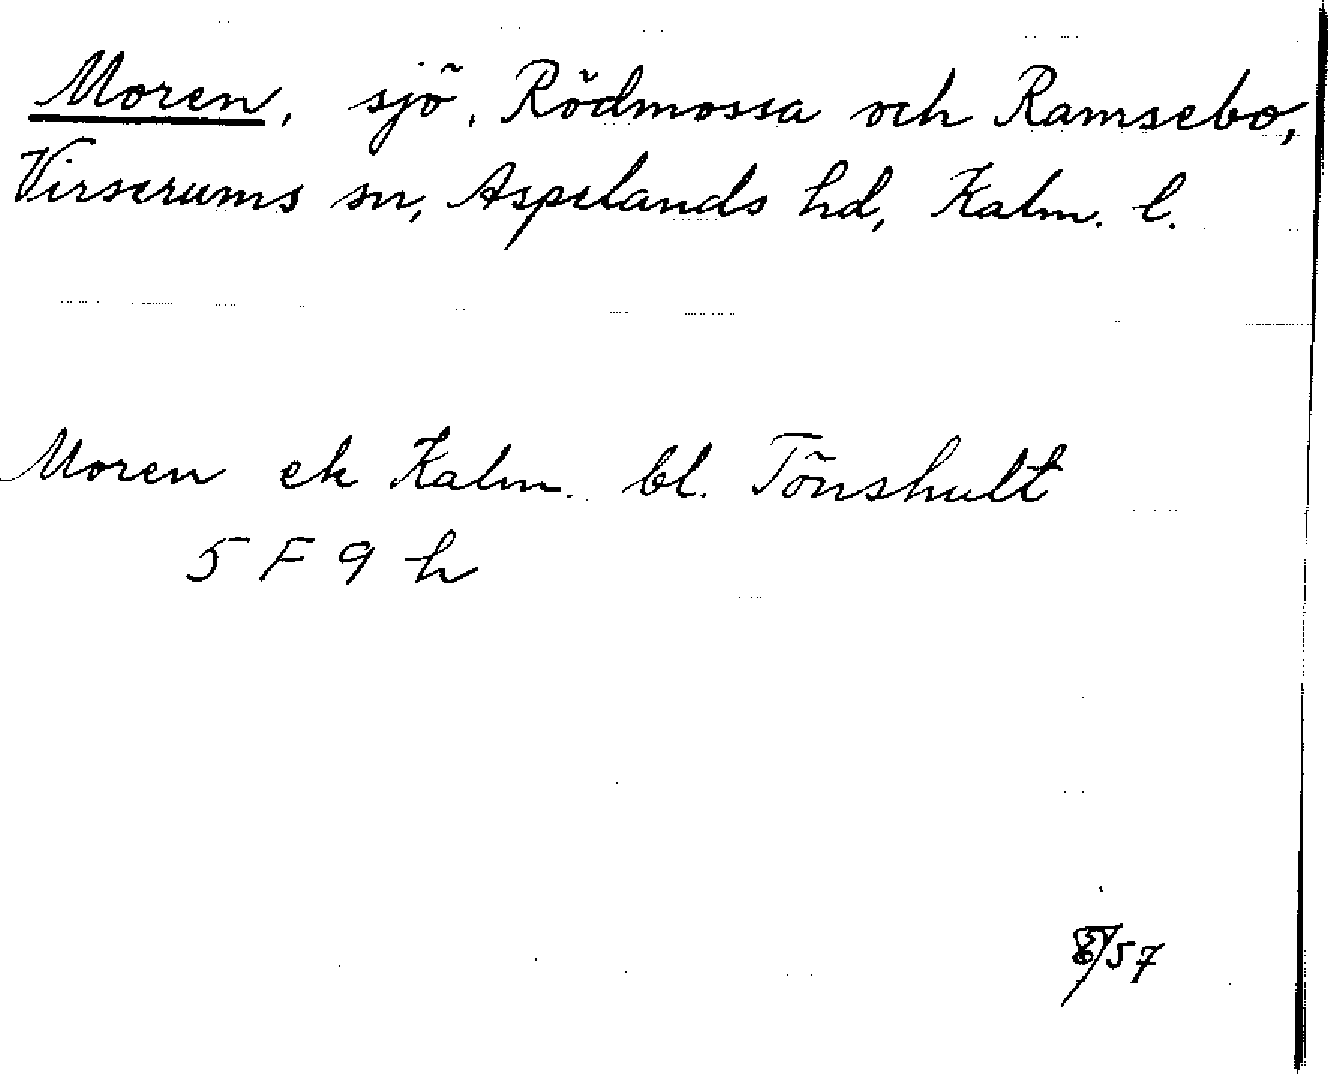 Moren, sjö, Rödmossa och Ramsebo,
Virserums sn, Aspelands hd, Kalm. l.
Moren ek Kalm. bl. Tönshult
5 F 9 h
/57